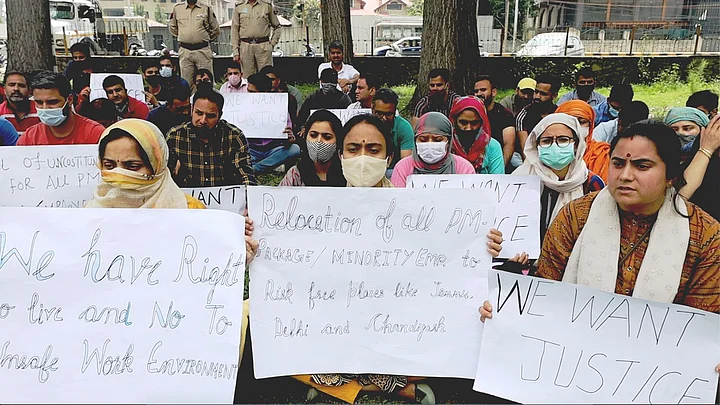 OF UNCONSTITU
FOR ALL PM
WE WANT
JUSTICE
We have Right
to live and No To
Unsafe Work Environment
Relocation of all PM-
PACKAGE/MINORITY EMP. to
Risk free places like Jammu
Delhi and Chandigarh
WE WANT
WE WANT
JUSTICE
WANT